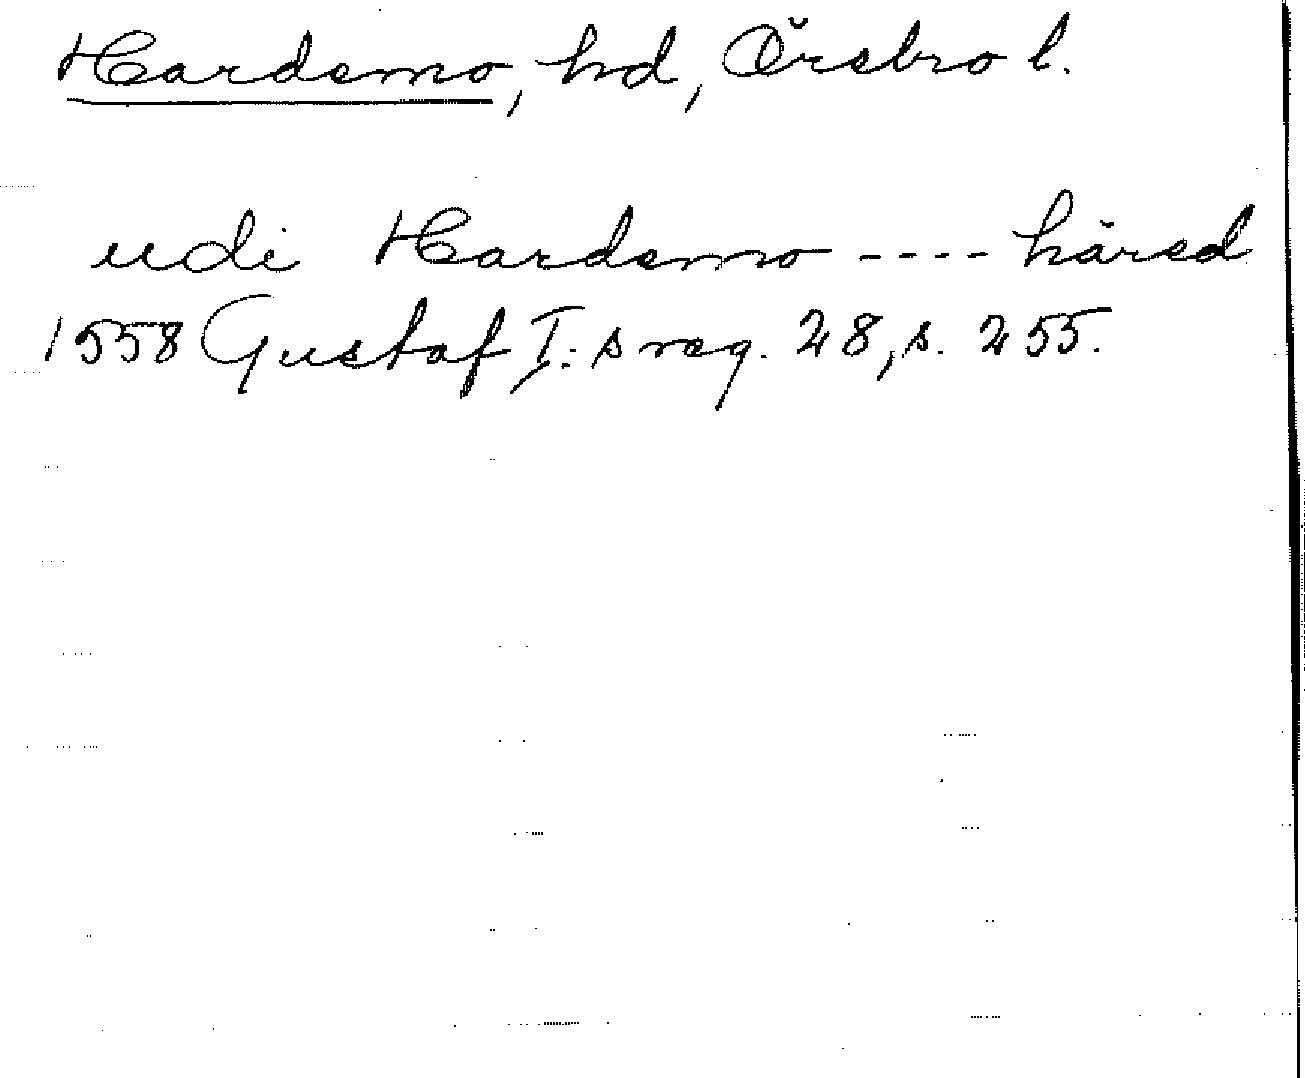 Hardemo, hd, Örebro l.
udi Hardemo ---- häred
1558 Gustaf I:s reg. 28, s. 255.